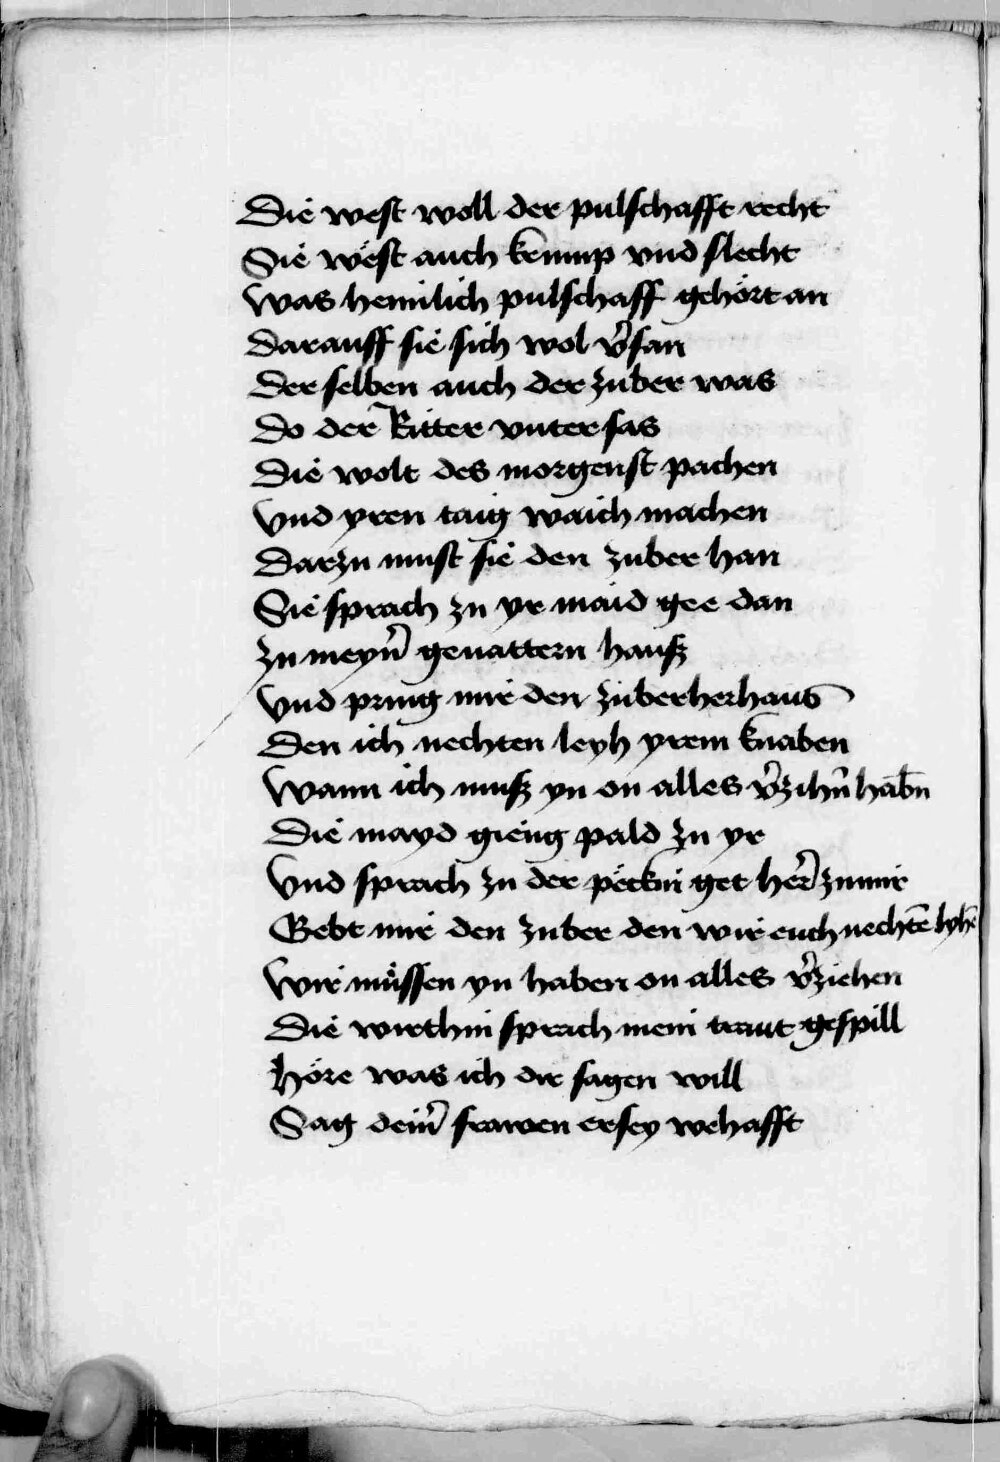 Die west woll der pulschafft recht
Sie wëst auch krump vnd slecht
Was heimlich pulschaff gehört an
Darauff sie sich wol v̄san
Der selben auch der zuber was
Do der Ritter vnter sas
Die wolt des morgenst pachen
Vnd yren taig waich machen
Darzu must sie den zuber han
Sie sprach zu yr maid gee dan
Zu meyn̄ geuattern hausz
Vnd pring mir den zuber herhaus
Den ich nechten leyh yrem knaben
Wann ich musz yn on alles v̄zihn̄ hab̄n
Die mayd gieng pald zu yr
Vnd sprach zu der peckin get her̄ zu mir
Gebt mir den zuber den wir euch nechtē lyhē
Wir müssen yn haben on alles v̄ziehen
Die wirthin sprach mein traut gespill
Höre was ich dir sagen will
Sag dein̄ frawen er sey wehafft